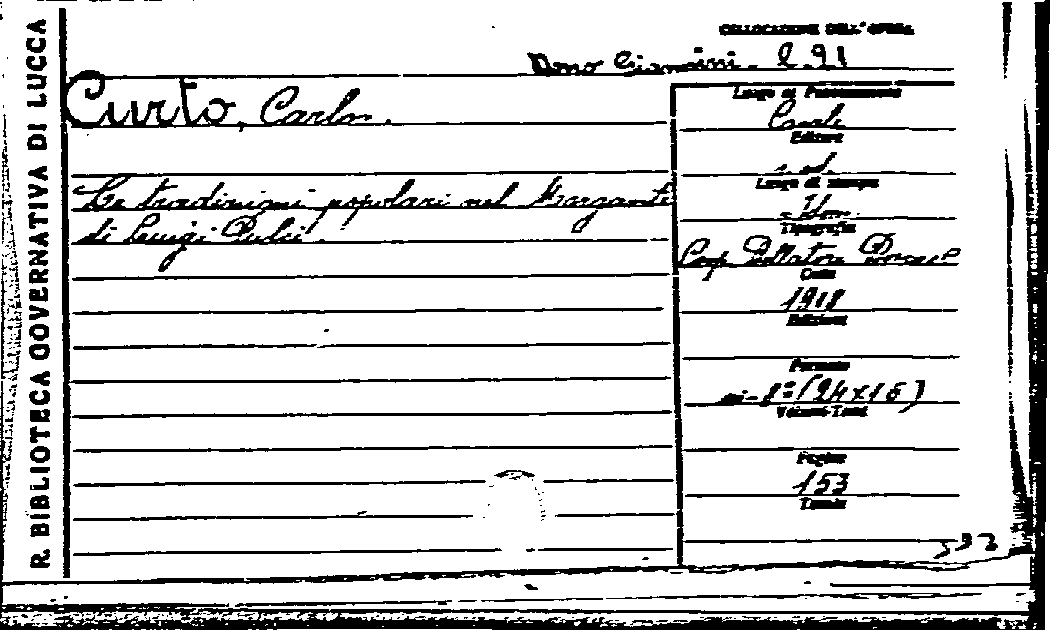 R. BIBLIOTECA GOVERNATIVA DI LUCCA
COLLOCAZIONE DELL'OPERA
Dono Giannini. 2.91
Curto, Carlo.
Le tradizioni popolari nel Morgante
di Luigi Pulci.
Luogo di
Casale
Editore
s. ed.
Luogo di stampa
Idem.
Tipografia
Coop. Bellatore Bosco e C
Data
1918
Edizione
Formato
in-8° (24x16)
Volumi-Tomi
Pagine
153
Tavole
532